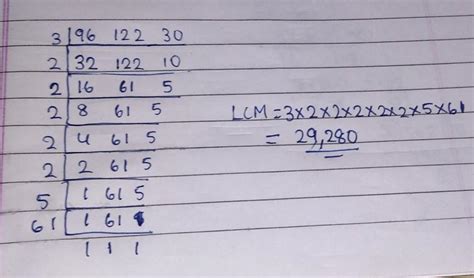 3 | 96 122 30
2 | 32 122 10
2 | 16 61 5
2 | 8 61 5
2 | 4 61 5
2 | 2 61 5
5 | 1 61 5
61 | 1 61 1
1 1 1
LCM = 3×2×2×2×2×2×5×61
= 29,280